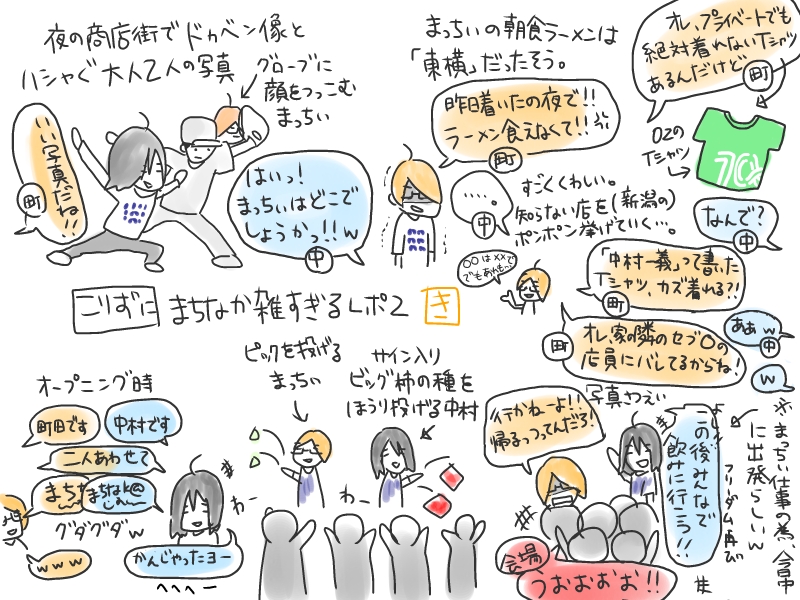 夜の商店街でドカベン像と
ハシャぐ大人2人の写真
グローブに
顔をつっこむ
まっちぃ
いい写真だね!!
町
はいっ!
まっちぃはどこで
しょうかっ!!w
中
まっちぃの朝食ラーメンは
「東横」だったそう。
昨日着いたの夜で!!
ラーメン食えなくて!!
町
・・・・。
中
すごくくわしい。
知らない店を(新潟の)
ポンポン挙げていく…。
〇〇は××で
でもあれも…
オレ、プライベートでも
絶対着れないTシャツ
あるんだけど
町
OZの
Tシャツ
なんで?
中
「中村一義」って書いた
Tシャツ、カズ着れる?!
町
オレ、家の隣のセブ〇の
店員にバレてるからね!
町
ああw
中
w
こりずに まちなか雑すぎるレポ2 き
オープニング時
町田です
中村です
二人あわせて
まちな
まちなk@
グダグダw
www
かんじゃったヨー
へへへー
ピックを投げる
まっちぃ
サイン入り
ビッグ柿の種を
ほうり投げる中村
わー
わー
行かねーよ!!
帰るっつってんだろ!
写真さつえい
この後みんなで
飲みに行こう!!
会場
うおおおお!!
※まっちぃ仕事の為、会中
に出発らしいw
フリーダム再び